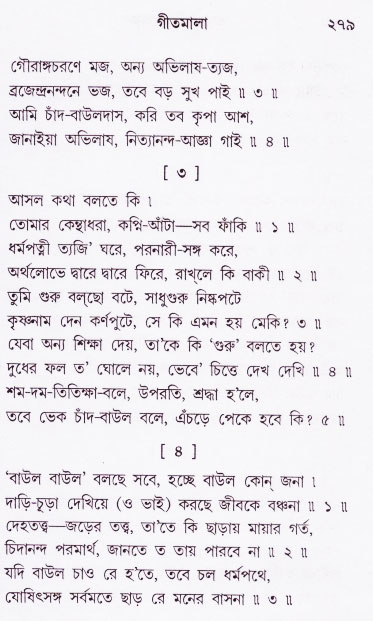 গীতমালা ২৭৯
গৌরাঙ্গচরণে মজ, অন্য অভিলাষ-ত্যজ,
ব্রজেন্দ্রনন্দনে ভজ, তবে বড় সুখ পাই ॥ ৩ ॥
আমি চাঁদ-বাউলদাস, করি তব কৃপা আশ,
জানাইয়া অভিলাষ, নিত্যানন্দ-আজ্ঞা গাই ॥ ৪ ॥
[ ৩ ]
আসল কথা বলতে কি ।
তোমার কেন্থাধরা, কপ্নি-আঁটা—সব ফাঁকি ॥ ১ ॥
ধর্মপত্নী ত্যজি' ঘরে, পরনারী-সঙ্গ করে,
অর্থলোভে দ্বারে দ্বারে ফিরে, রাখ্‌লে কি বাকী ॥ ২ ॥
তুমি গুরু বল্‌ছো বটে, সাধুগুরু নিষ্কপটে
কৃষ্ণনাম দেন কর্ণপুটে, সে কি এমন হয় মেকি? ৩ ॥
যেবা অন্য শিক্ষা দেয়, তা'কে কি 'গুরু' বলতে হয়?
দুধের ফল ত' ঘোলে নয়, ভেবে' চিত্তে দেখ দেখি ॥ ৪ ॥
শম-দম-তিতিক্ষা-বলে, উপরতি, শ্রদ্ধা হ'লে,
তবে ভেক চাঁদ-বাউল বলে, এঁচড়ে পেকে হবে কি? ৫ ॥
[ ৪ ]
'বাউল বাউল' বলছে সবে, হচ্ছে বাউল কোন্ জনা ।
দাড়ি-চূড়া দেখিয়ে (ও ভাই) করছে জীবকে বঞ্চনা ॥ ১ ॥
দেহতত্ত্ব—জড়ের তত্ত্ব, তা'তে কি ছাড়ায় মায়ার গর্ত,
চিদানন্দ পরমার্থ, জানতে ত তায় পারবে না ॥ ২ ॥
যদি বাউল চাও রে হ'তে, তবে চল ধর্মপথে,
যোষিৎসঙ্গ সর্বমতে ছাড় রে মনের বাসনা ॥ ৩ ॥